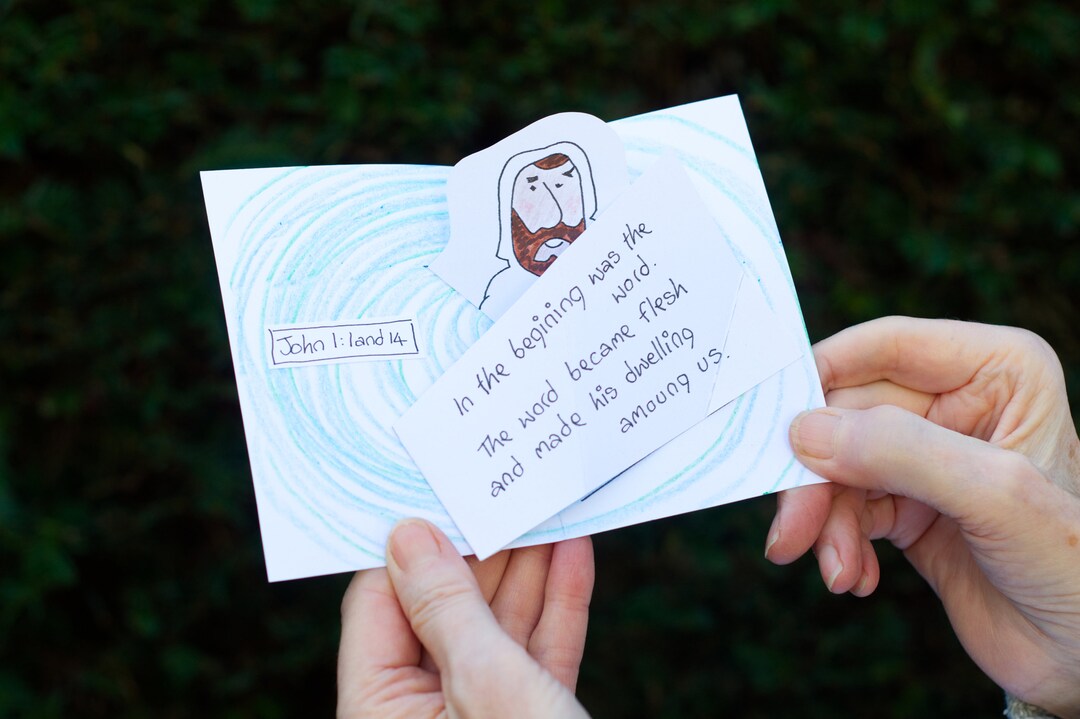 John 1:1and 14
In the begining was the
word.
The word became flesh
and made his dwelling
amoung us.